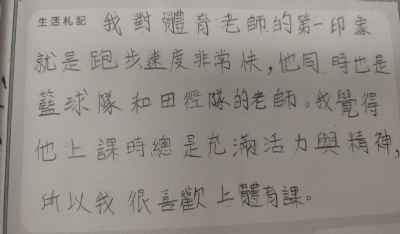 生活札記 我對體育老師的第一印象
就是跑步速度非常快,他同時也是
籃球隊和田徑隊的老師。我覺得
他上課時總是充滿活力與精神,
所以我很喜歡上體育課。